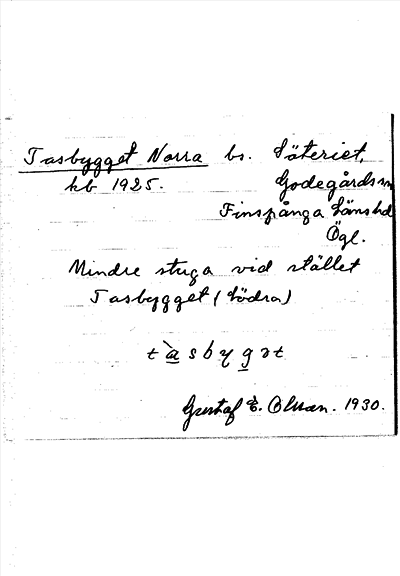 Tasbygget Norra bs. Säteriet,
kb 1925. Godegårds sn
Finspånga Läns hd
Ögl.
Mindre stuga vid stället
Tasbygget (Södra)
t à s b y g ə t
Gustaf E. Olsson. 1930.